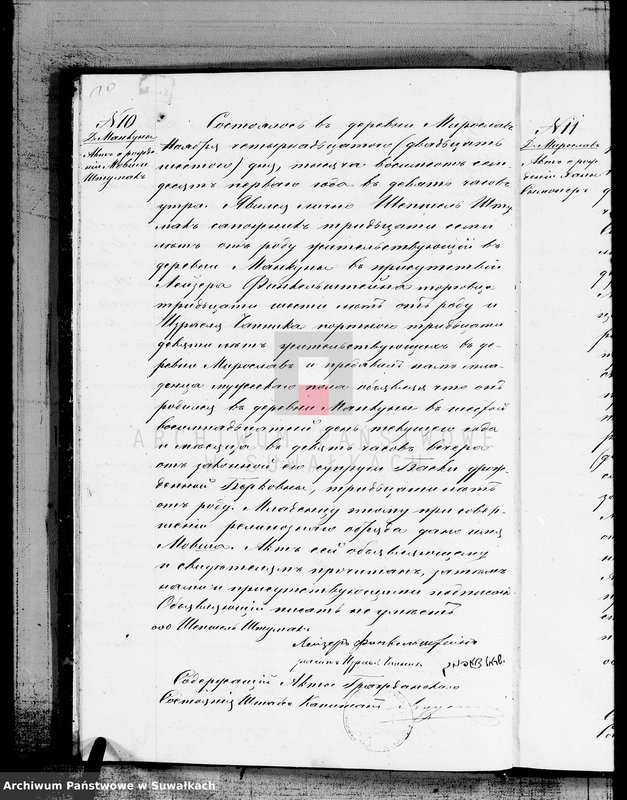 N10
Д. Манкуны
Актъ о рожде-
ніи Мовши
Штумакъ
Состоялось въ деревни Мирославъ
Ноября четырнадцатого (двадцать
шестого) дня, тысяча восемьсотъ сем-
десятъ первого года въ девять часовъ
утра. Явился лично Шепшель Шту
макъ сапожникъ тридцати семи
лѣтъ отъ роду жительствующій въ
деревни Манкуны въ присутствіи
Лейзера Финкельштейна торговца
тридцати шести лѣтъ отъ роду и
Израеля портного тридцати
девяти лѣтъ жительствующихъ въ де-
ревни Мирославъ и предъявилъ намъ мла-
денца мужескаго пола объявляя что онъ
родился въ деревни Манкуны въ
день текущего года
и мѣсяца въ девять часовъ вечера
отъ законной его супруги Баски урож-
денной Берковны, тридцати лѣтъ
отъ роду. Младенцу этому при совер-
шеніи религіознаго обряда дано имя
Мовша. Актъ сей объявляющему
и свидѣтелямъ прочитанъ, затѣмъ
нами и присутствующими подписанъ
Объявляющій писать не умѣетъ
Шепшель Штумакъ.
Лейзеръ Финкельштейнъ
Содержащій Акты Гражданскаго
Состоянія Штабсъ Капитанъ
N11
Д. Мирославъ
Актъ о рож-
деніи
ARCHIWUM PAŃSTWOWE
W SUWAŁKACH
Archiwum Państwowe w Suwałkach